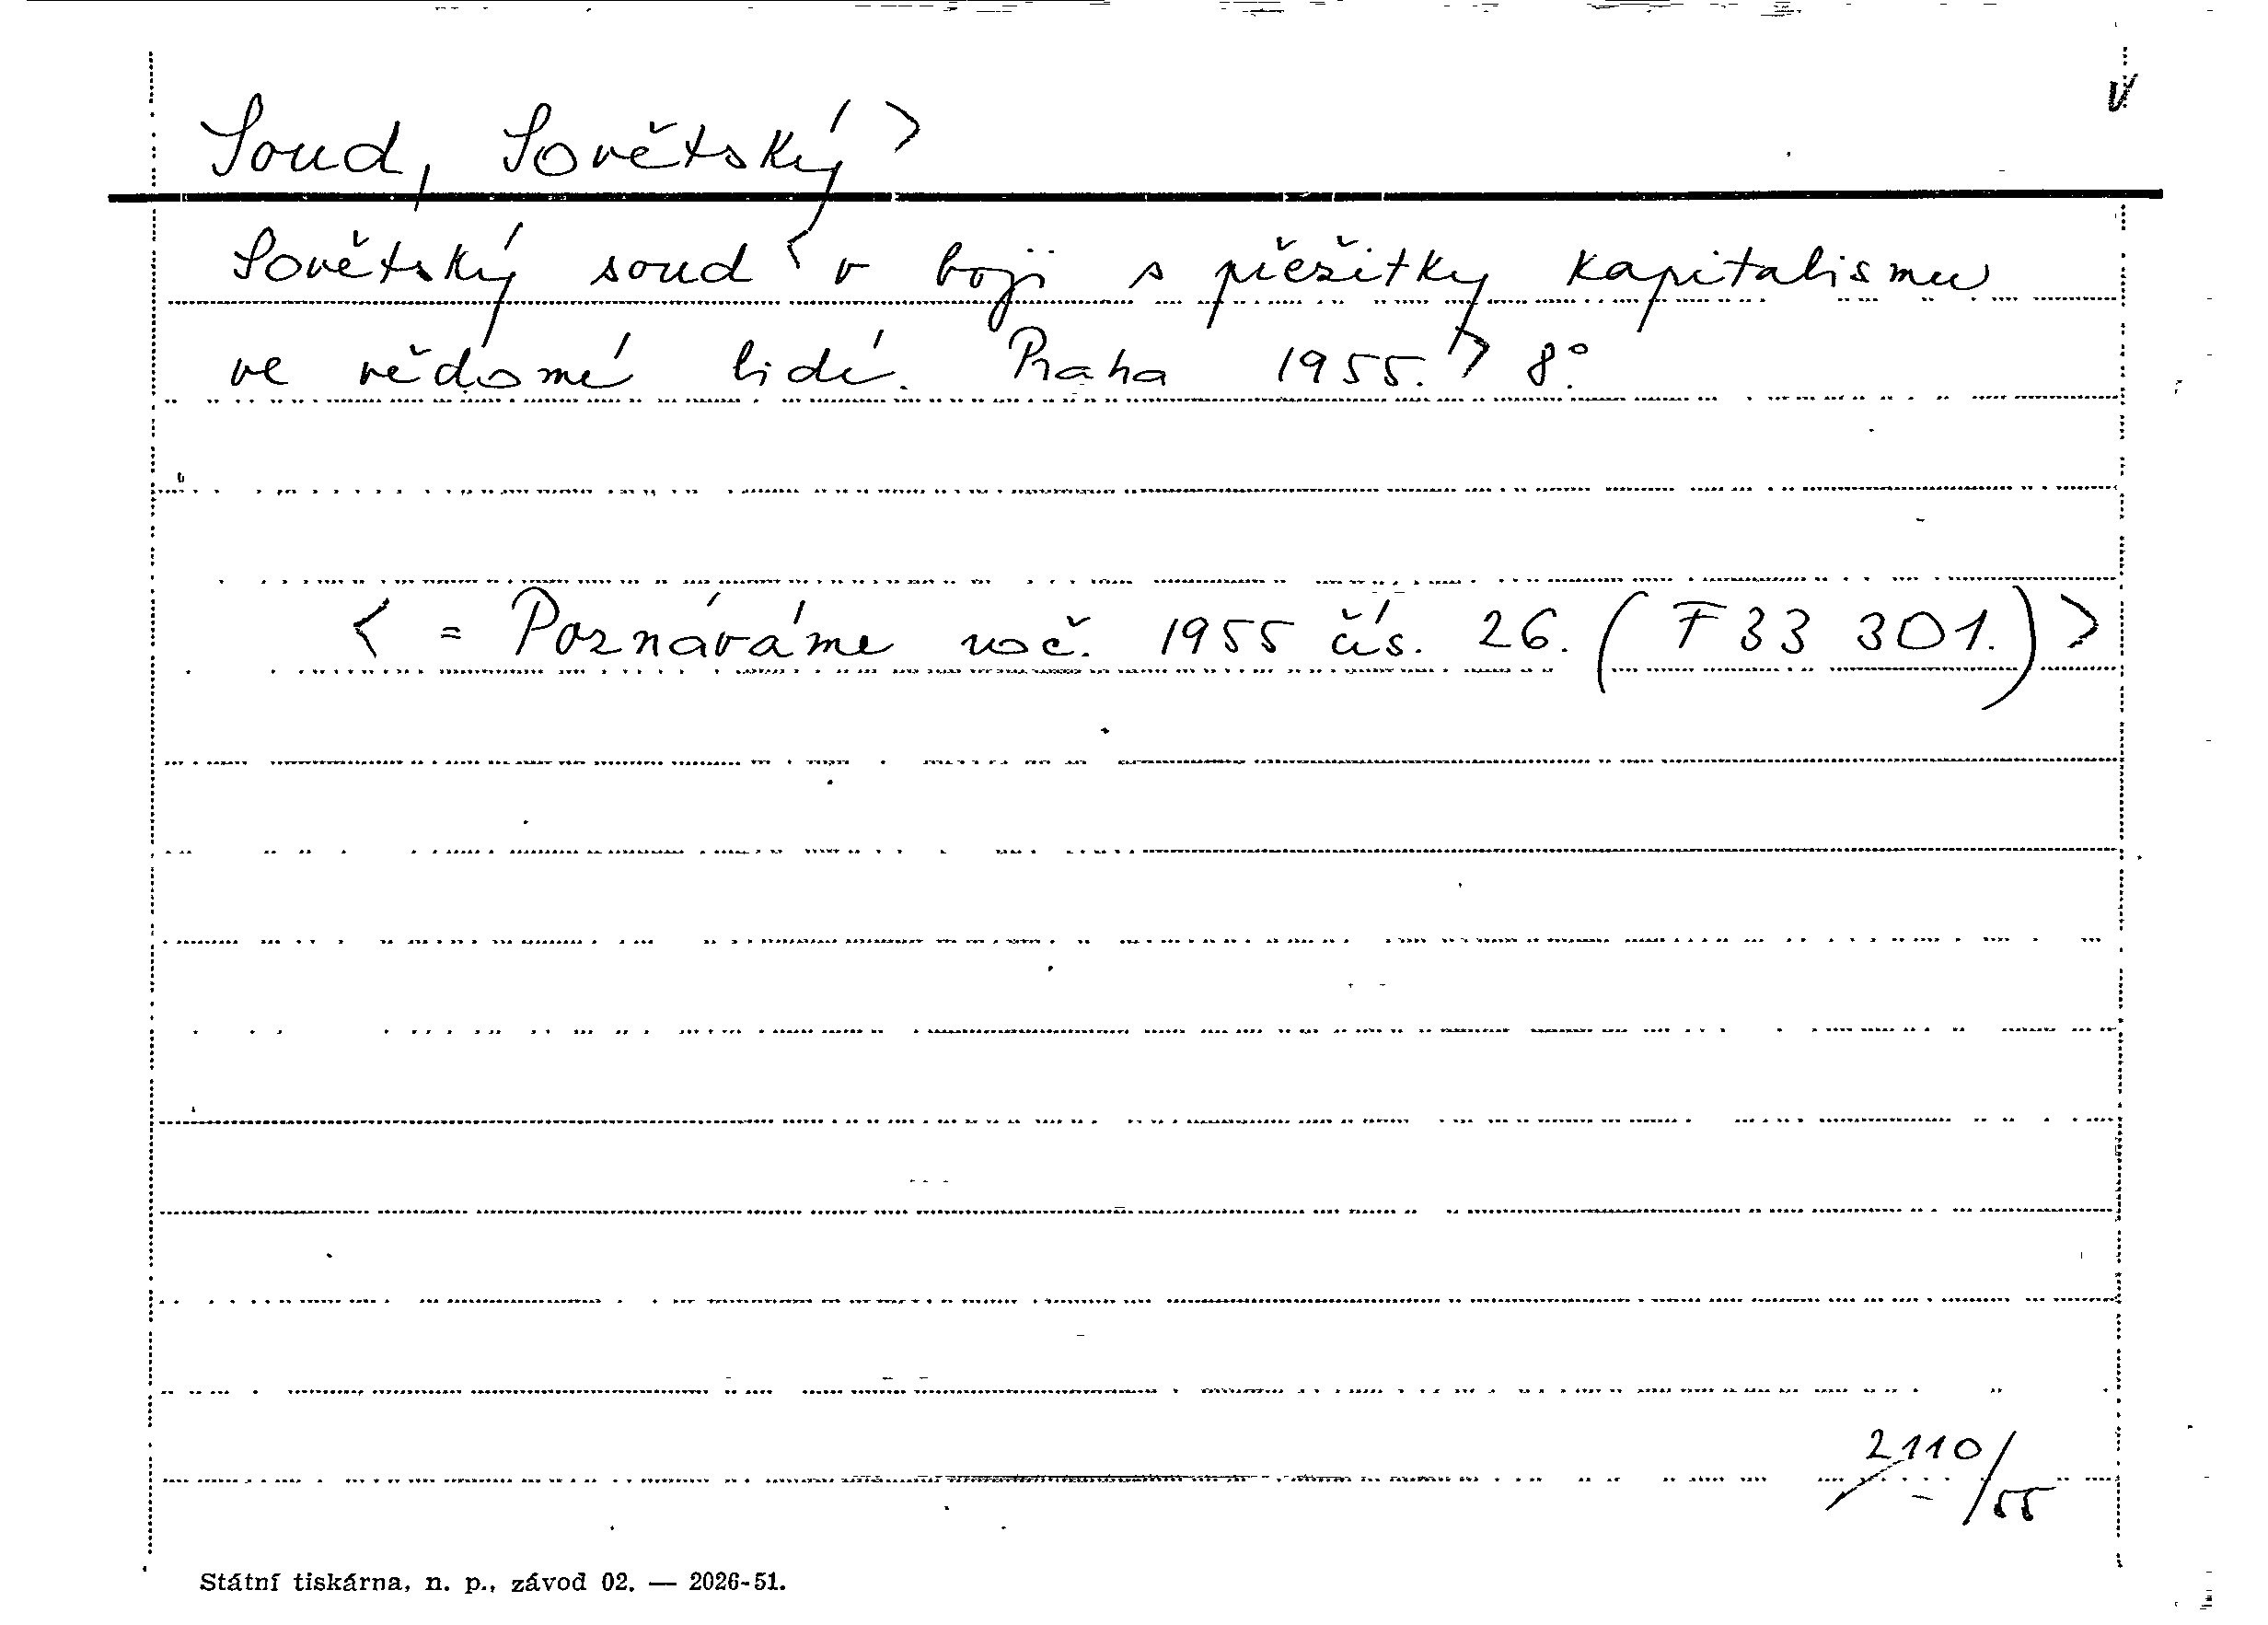 Soud, Sovětský >
Sovětský soud < v boji s přežitky kapitalismu
ve vědomí lidí. Praha 1955. > 8°.
< = Poznáváme roč. 1955 čís. 26. (F 33 301.) >
2110/55
Státní tiskárna, n. p., závod 02. — 2026-51.